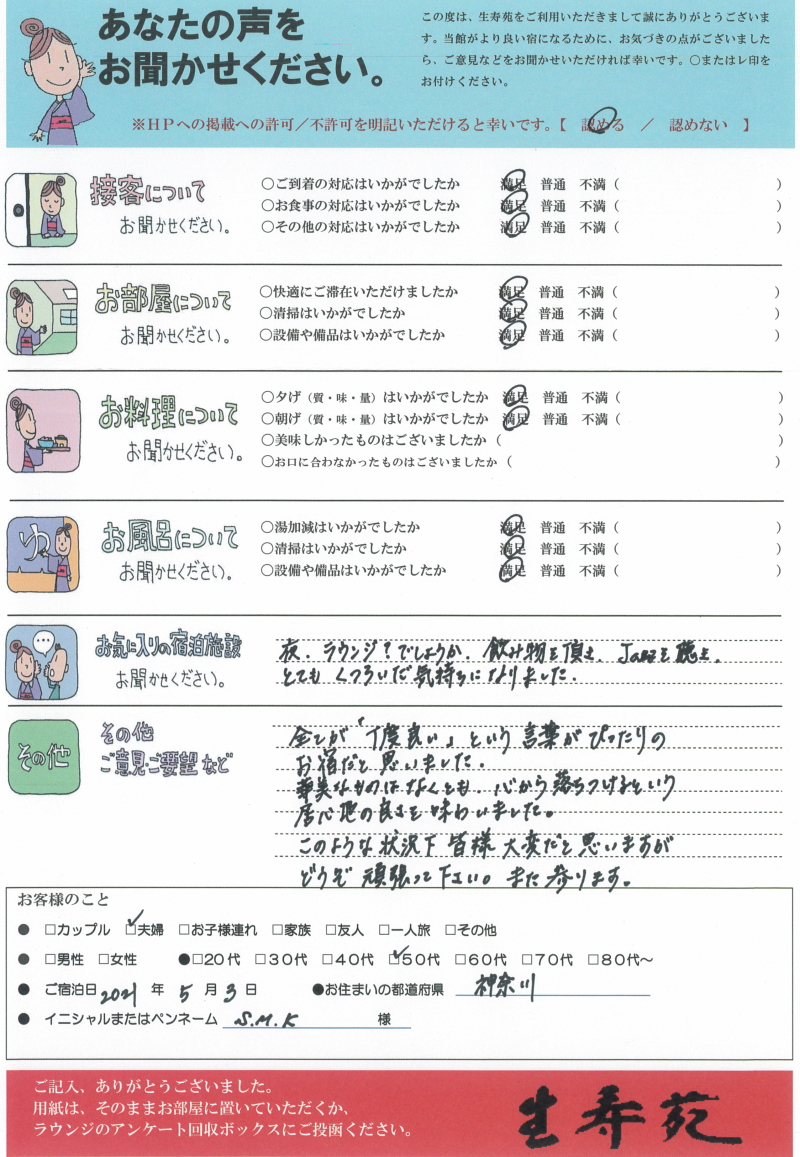 あなたの声を
お聞かせください。
この度は、生寿苑をご利用いただきまして誠にありがとうございま
す。当館がより良い宿になるために、お気づきの点がございました
ら、ご意見などをお聞かせいただければ幸いです。○またはレ印を
お付けください。
※HPへの掲載への許可／不許可を明記いただけると幸いです。【 認める ／ 認めない 】
接客について
お聞かせください。
○ご到着の対応はいかがでしたか 満足 普通 不満（ ）
○お食事の対応はいかがでしたか 満足 普通 不満（ ）
○その他の対応はいかがでしたか 満足 普通 不満（ ）
お部屋について
お聞かせください。
○快適にご滞在いただけましたか 満足 普通 不満（ ）
○清掃はいかがでしたか 満足 普通 不満（ ）
○設備や備品はいかがでしたか 満足 普通 不満（ ）
お料理について
お聞かせください。
○夕げ（質・味・量）はいかがでしたか 満足 普通 不満（ ）
○朝げ（質・味・量）はいかがでしたか 満足 普通 不満（ ）
○美味しかったものはございましたか（ ）
○お口に合わなかったものはございましたか（ ）
ゆ
お風呂について
お聞かせください。
○湯加減はいかがでしたか 満足 普通 不満（ ）
○清掃はいかがでしたか 満足 普通 不満（ ）
○設備や備品はいかがでしたか 満足 普通 不満（ ）
お気に入りの宿泊施設
お聞かせください。
夜、ラウンジ？でしょうか、飲み物を頂き、Jazzを聴き、
とてもくつろいだ気持ちになりました。
その他
その他
ご意見・ご要望など
全てが「丁度良い」という言葉がぴったりの
お宿だと思いました。
華美なものはなくとも、心から落ちつけるという
居心地の良さを味わいました。
このような状況下皆様大変だと思いますが
どうぞ頑張って下さい。また参ります。
お客様のこと
● □カップル □夫婦 □お子様連れ □家族 □友人 □一人旅 □その他
● □男性 □女性 ●□20代 □30代 □40代 □50代 □60代 □70代 □80代～
● ご宿泊日 2021 年 5 月 3 日 ●お住まいの都道府県 神奈川
● イニシャルまたはペンネーム S.M.K 様
ご記入、ありがとうございました。
用紙は、そのままお部屋に置いていただくか、
ラウンジのアンケート回収ボックスにご投函ください。
生寿苑